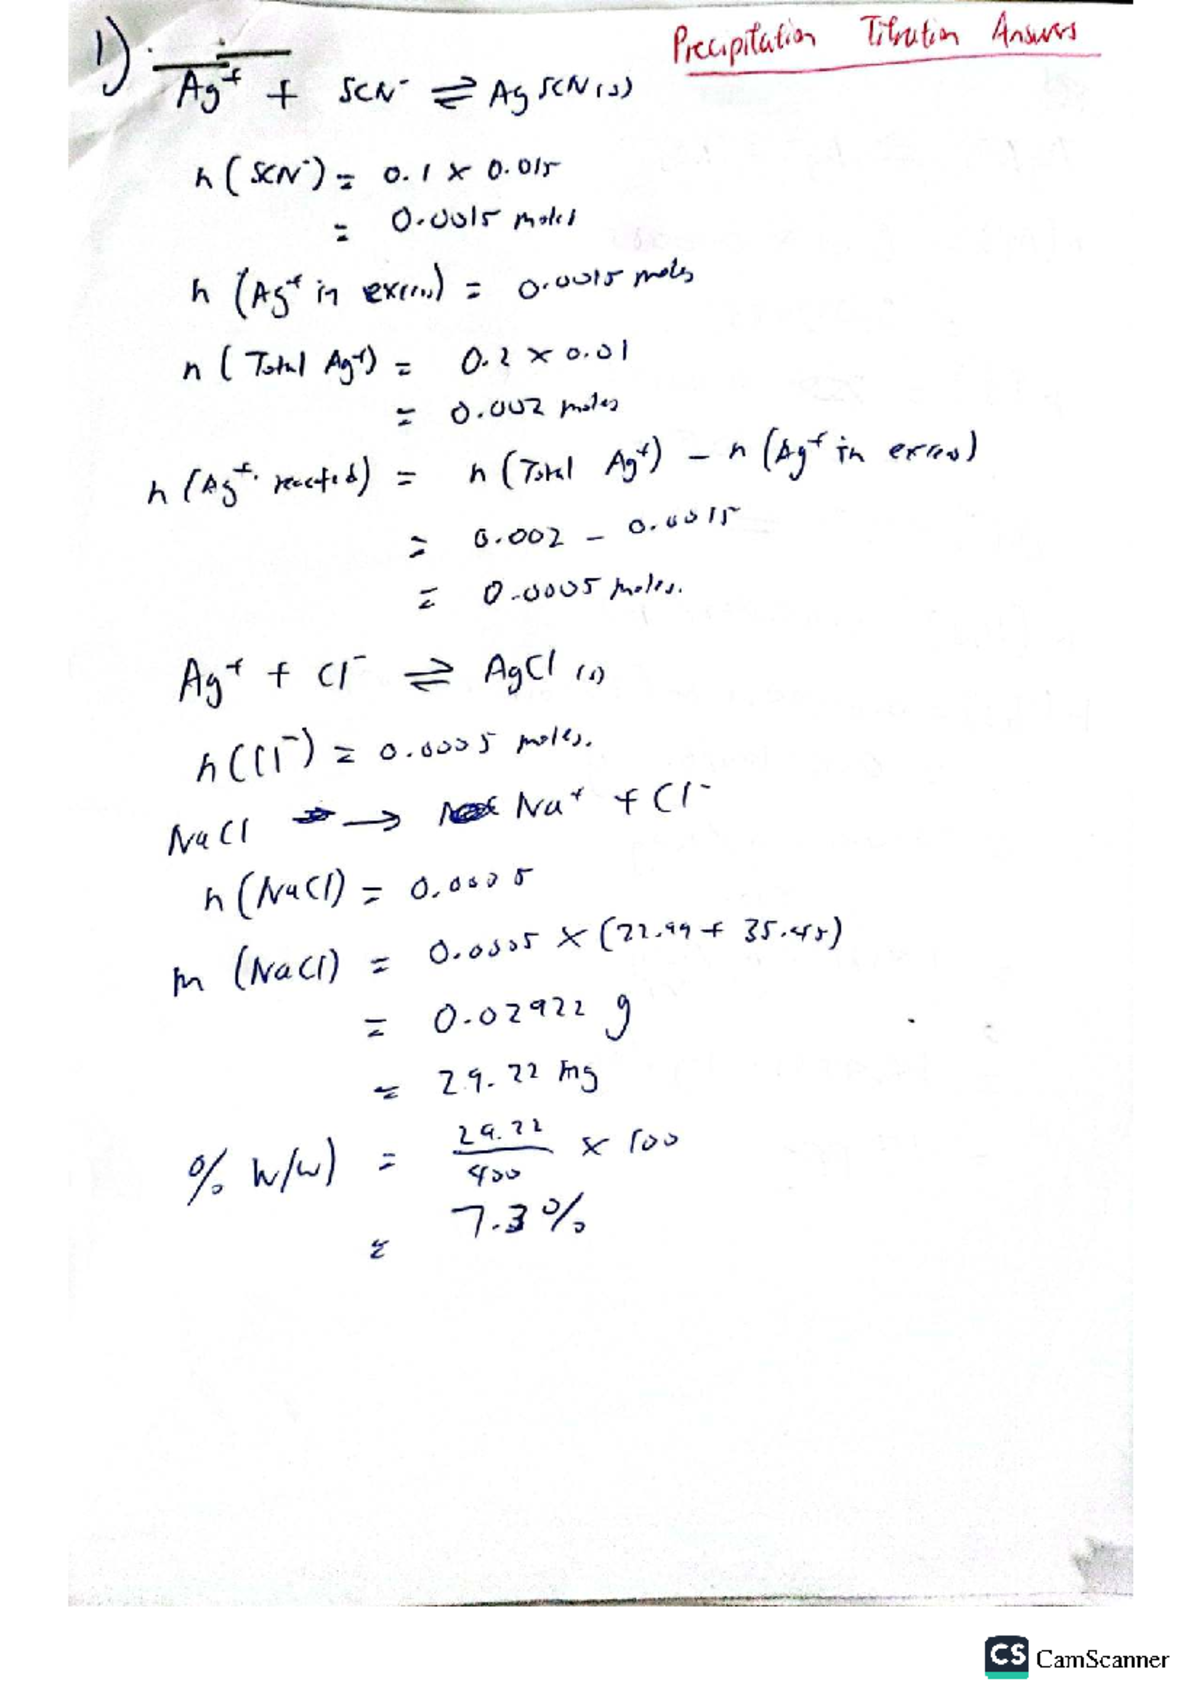 Precipitation Titration Answers
1)
Ag⁺ + SCN⁻ ⇌ AgSCN(s)
n(SCN⁻) = 0.1 × 0.015
= 0.0015 moles
n(Ag⁺ in excess) = 0.0015 moles
n(Total Ag⁺) = 0.2 × 0.01
= 0.002 moles
n(Ag⁺ reacted) = n(Total Ag⁺) − n(Ag⁺ in excess)
= 0.002 − 0.0015
= 0.0005 moles.
Ag⁺ + Cl⁻ ⇌ AgCl(s)
n(Cl⁻) = 0.0005 moles.
NaCl → Na⁺ + Cl⁻
n(NaCl) = 0.0005
m(NaCl) = 0.0005 × (22.99 + 35.45)
= 0.02922 g
= 29.22 mg
% w/w) = 29.22/400 × 100
= 7.3%
CS CamScanner